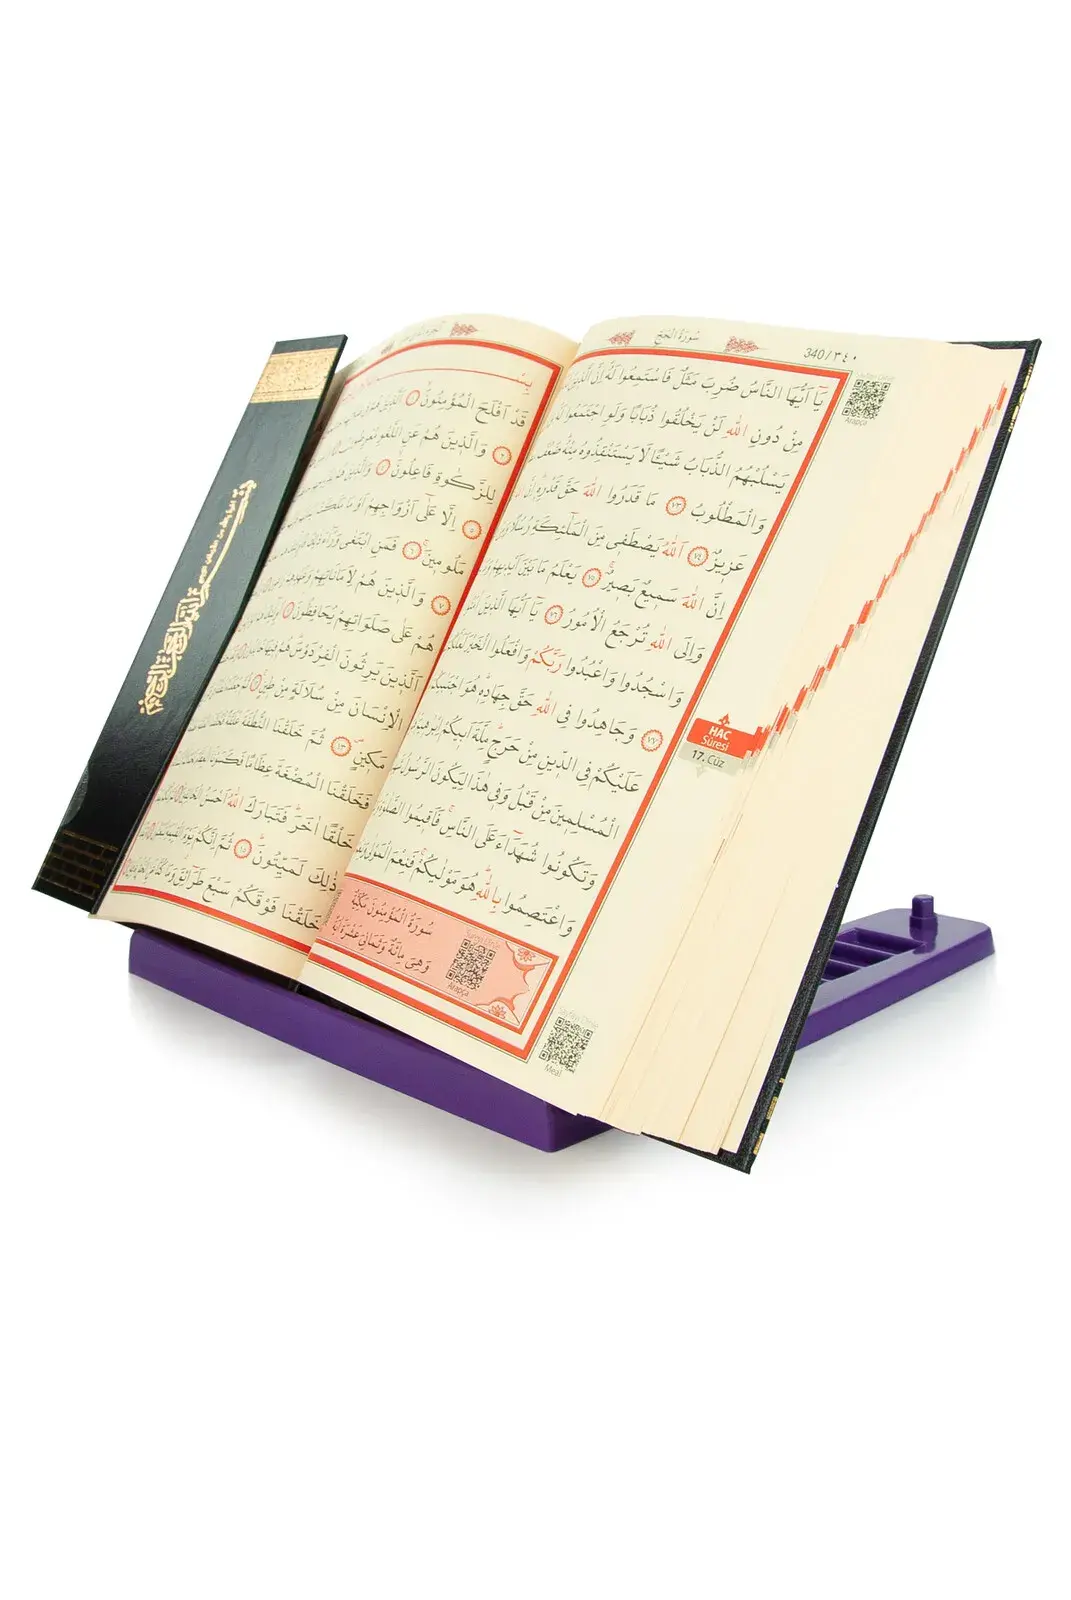 340 / ٣٤٠
سُورَةُ الْحَجِّ
يَٓا اَيُّهَا النَّاسُ ضُرِبَ مَثَلٌ فَاسْتَمِعُوا لَهُ اِنَّ الَّذ۪ينَ
مِنْ دُونِ اللّٰهِ لَنْ يَخْلُقُوا ذُبَابًا وَلَوِ اجْتَمَعُوا لَهُ
يَسْلُبْهُمُ الذُّبَابُ شَيْـًٔا لَا يَسْتَنْقِذُوهُ مِنْهُ ضَعُفَ
وَالْمَطْلُوبُ ٧٣ مَا قَدَرُوا اللّٰهَ حَقَّ قَدْرِه۪ اِنَّ
عَز۪يزٌ ٧٤ اَللّٰهُ يَصْطَف۪ي مِنَ الْمَلٰٓئِكَةِ رُسُلًا
اِنَّ اللّٰهَ سَم۪يعٌ بَص۪يرٌ ٧٥ يَعْلَمُ مَا بَيْنَ اَيْد۪يهِمْ
وَاِلَى اللّٰهِ تُرْجَعُ الْاُمُورُ ٧٦ يَٓا اَيُّهَا الَّذ۪ينَ
وَاسْجُدُوا وَاعْبُدُوا رَبَّكُمْ وَافْعَلُوا الْخَيْرَ
٧٧ وَجَاهِدُوا فِي اللّٰهِ حَقَّ جِهَادِه۪ هُوَ اجْتَبٰيكُمْ
عَلَيْكُمْ فِي الدّ۪ينِ مِنْ حَرَجٍ مِلَّةَ اَب۪يكُمْ اِبْرٰه۪يمَ
الْمُسْلِم۪ينَ مِنْ قَبْلُ وَف۪ي هٰذَا لِيَكُونَ الرَّسُولُ
وَتَكُونُوا شُهَدَٓاءَ عَلَى النَّاسِ فَاَق۪يمُوا الصَّلٰوةَ
وَاعْتَصِمُوا بِاللّٰهِ هُوَ مَوْلٰيكُمْ فَنِعْمَ الْمَوْلٰى
سُورَةُ الْمُؤْمِنُونَ مَكِّيَّةٌ
وَهِيَ مِائَةٌ وَثَمَانِيَ عَشْرَةَ اٰيَةً
Arapça
Arapça
Meal
HAC
Sûresi
17. Cüz
قَدْ اَفْلَحَ الْمُؤْمِنُونَ ١ اَلَّذ۪ينَ
٢ وَالَّذ۪ينَ هُمْ عَنِ اللَّغْوِ مُعْرِضُونَ
لِلزَّكٰوةِ فَاعِلُونَ ٤ وَالَّذ۪ينَ
٥ اِلَّا عَلٰٓى اَزْوَاجِهِمْ اَوْ مَا مَلَكَتْ
مَلُوم۪ينَ ٦ فَمَنِ ابْتَغٰى وَرَٓاءَ ذٰلِكَ
٧ وَالَّذ۪ينَ هُمْ لِاَمَانَاتِهِمْ وَعَهْدِهِمْ
هُمْ عَلٰى صَلَوَاتِهِمْ يُحَافِظُونَ
اَلَّذ۪ينَ يَرِثُونَ الْفِرْدَوْسَ هُمْ ف۪يهَا
الْاِنْسَانَ مِنْ سُلَالَةٍ مِنْ ط۪ينٍ
مَك۪ينٍ ١٣ ثُمَّ خَلَقْنَا النُّطْفَةَ عَلَقَةً
فَخَلَقْنَا الْمُضْغَةَ عِظَامًا فَكَسَوْنَا
خَلْقًا اٰخَرَ فَتَبَارَكَ اللّٰهُ اَحْسَنُ الْخَالِق۪ينَ
ذٰلِكَ لَمَيِّتُونَ ١٥ ثُمَّ اِنَّكُمْ يَوْمَ الْقِيٰمَةِ
خَلَقْنَا فَوْقَكُمْ سَبْعَ طَرَٓائِقَ وَمَا كُنَّا